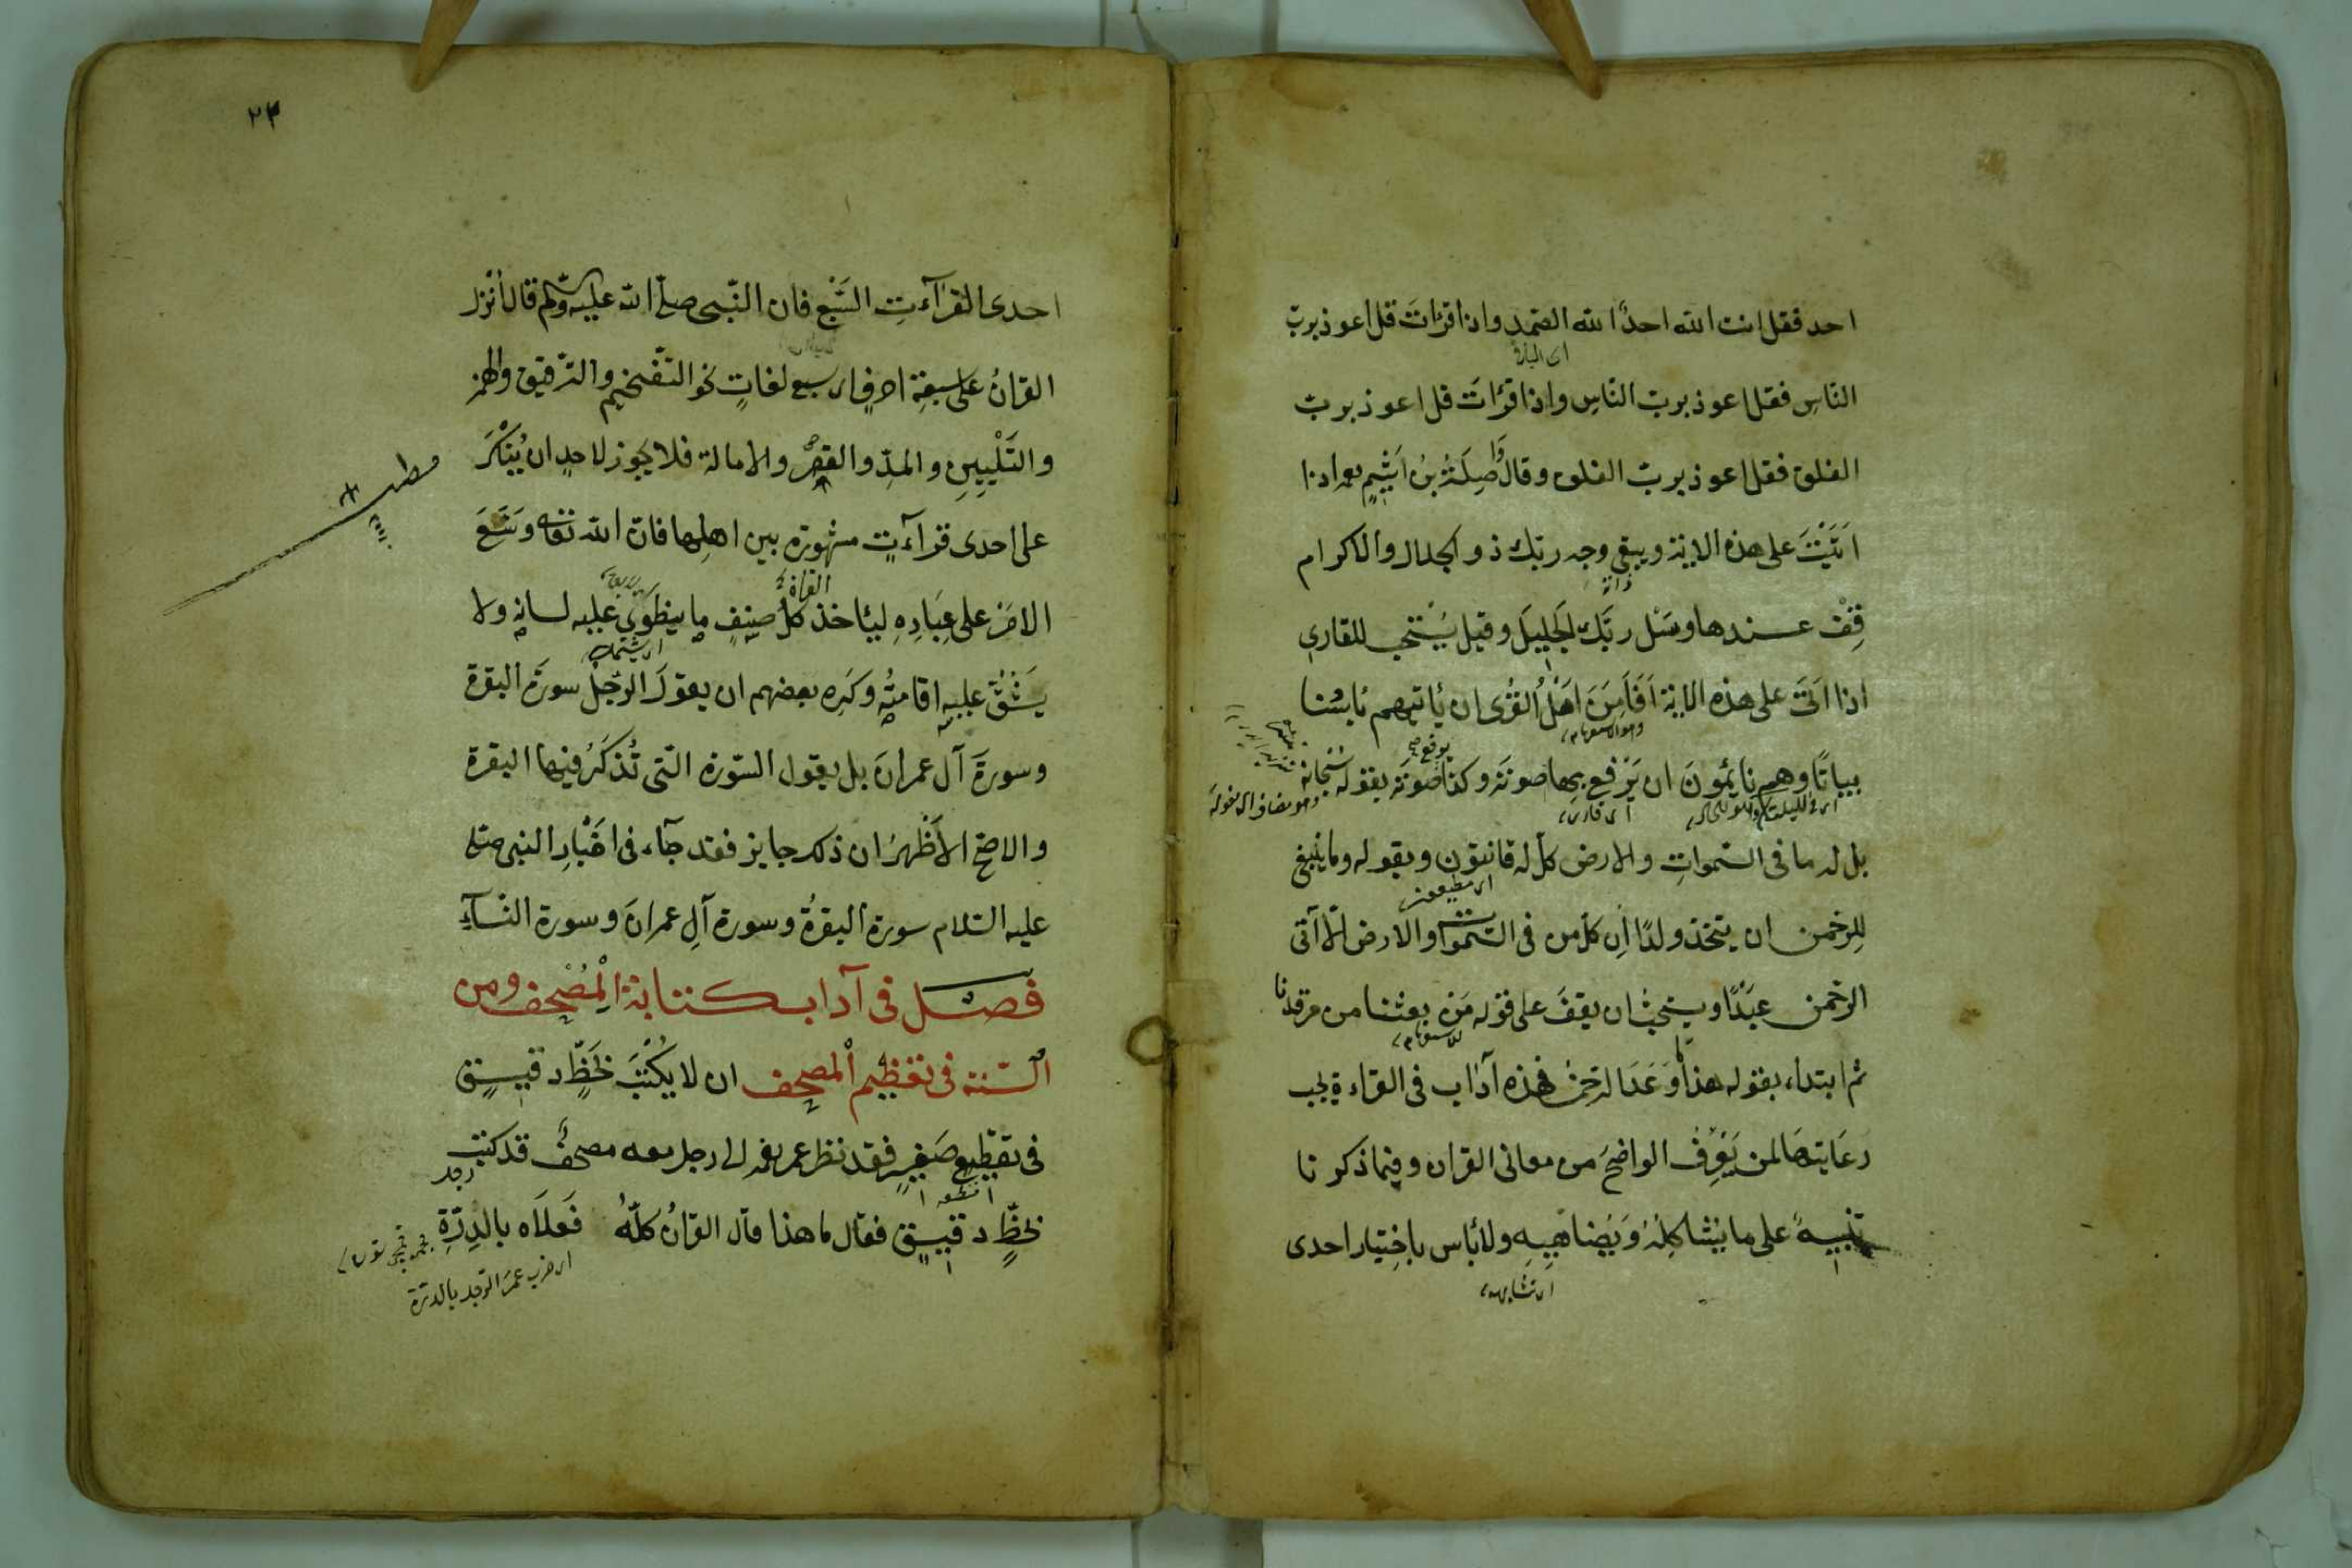 احد فقل انت الله احدٌ الله الصّمد واذا قرأتَ قل اعوذ بربّ
النّاسِ فقل اعوذ بربّ النّاسِ واذا قرأتَ قل اعوذ بربّ
الفلق فقل اعوذ بربّ الفلق وقال وَاصِلَةُ بنُ اَشْيَم بعد اذا
اَتَيْتَ على هذه الاية ويبقى وجه ربّك ذو الجلال والاكرام
ذاته
قِفْ عندها وسَلْ ربّك الجَليلَ وقيل يُسْتحب للقارى
اذا اَتىَ على هذه الاية اَفَاَمِنَ اَهْلُ القُرٰى ان يأتيهم بأسنا
بياتًا وهم نايمُونَ ان يَرْفع بها صوتَه وكذا صوتَه بقوله سُبْحانه
اى قارى
بل له ما فى السّموات والارض كلٌ له قانتون وبقوله وما ينبغى
اى مطيعون
لِلرحمن ان يتّخذ ولدًا اِن كلّ من فى السّموات والارض الّا آتى
الرحمن عَبْدًا ويستحبُّ ان يقفَ على قوله مَنْ بعثنا من مرقدنا
ثم ابتداء بقوله هذا مَا وَعَدَ الرّحمن فهذه آداب فى القراءة يجب
رعَايتهَا لمن يَعْرِفُ الواضحَ من معانى القران وفيما ذكرنا
تنبيهٌ على ما يُشاكِلُهُ وَيُضاهِيهِ ولا بأس باختيار احدى
اى تشابهه
٢٣
احدى القرآءتِ السَّبْع فان النّبى صلّى الله عليه وسلّم قال اُنْزل
القرانُ على سبعةِ احرفٍ اى سبع لغاتٍ نحو التّفخيم والترقيق والهمز
والتَلْيينِ والمدِّ والقصرِ والامالة فلا يجوز لاحدٍ ان يُنْكرَ
على احدى قرآءتٍ مشهورة بين اهلها فانّ الله تعالى وَسَّعَ
الامرَ على عِبَادِهِ ليأخذ كلُّ صنفٍ ما ينطوِى عليه لسانه ولا
يَشُقّ عليه اقامتُه وكَرِه بعضهم ان يقولَ الرّجلُ سورةَ البقرة
وسورةَ آل عمرانَ بل يقول السّورة التى تُذكَرُ فيها البقرة
والاصحّ الأظهرُ ان ذلك جايز فقد جآء فى اخْبارِ النبى صلى
عليه السّلام سورة البقرةُ وسورة آلِ عمرانَ وسورة النّسآءِ
فصل فى آداب كتابة الْمُصْحف ومن
السّنة فى تعظيم المصحف ان لا يُكْتبَ بخَطٍّ دقيقٍ
فى تقطيعٍ صَغيرٍ فقد نظر عمر الى رجل معه مصحفٌ قد كتب
بخطٍّ دقيقٍ فقال ما هذا قال القرانُ كلّهُ فَعلاَه بالدِرّةِ
اى ضرب عمرُ الرّجل بالدرّة